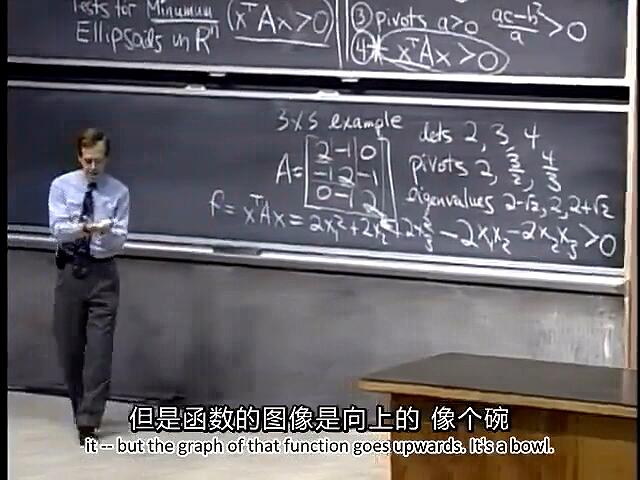 Tests for Minimum (xᵀAx>0)
Ellipsoids in Rⁿ
③ pivots a>0 (ac-b²)/a >0
④* xᵀAx>0
3x3 example
A= [2 -1 0
-1 2 -1
0 -1 2]
dets 2, 3, 4
pivots 2, 3/2, 4/3
eigenvalues 2-√2, 2, 2+√2
f= xᵀAx = 2x₁²+2x₂²+2x₃² -2x₁x₂ -2x₂x₃>0
但是函数的图像是向上的 像个碗
it -- but the graph of that function goes upwards. It's a bowl.